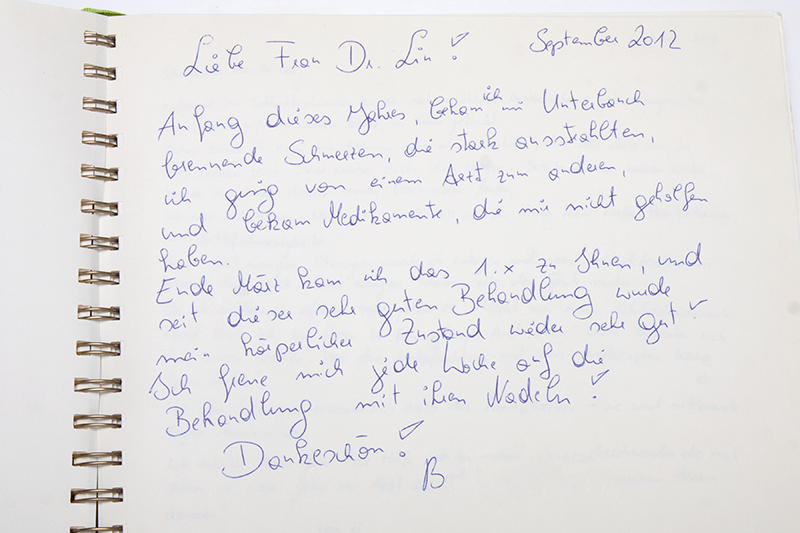 Liebe Frau Dr. Lin! September 2012
Anfang dieses Jahres, bekam ich im Unterbauch
brennende Schmerzen, die stark ausstrahlten,
ich ging von einem Arzt zum anderen,
und bekam Medikamente, die mir nicht geholfen
haben.
Ende März kam ich das 1.x zu Ihnen, und
seit dieser sehr guten Behandlung wurde
mein körperlicher Zustand wieder sehr gut!
Ich freue mich jede Woche auf die
Behandlung mit ihren Nadeln!
Dankeschön!
B